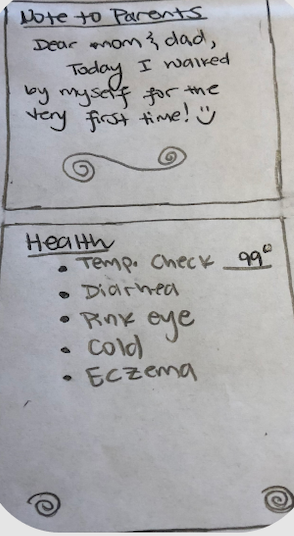 Note to Parents
Dear mom & dad,
Today I walked
by myself for the
very first time! :)
Health
• Temp. Check 99°
• Diarhea
• Pink eye
• Cold
• Eczema